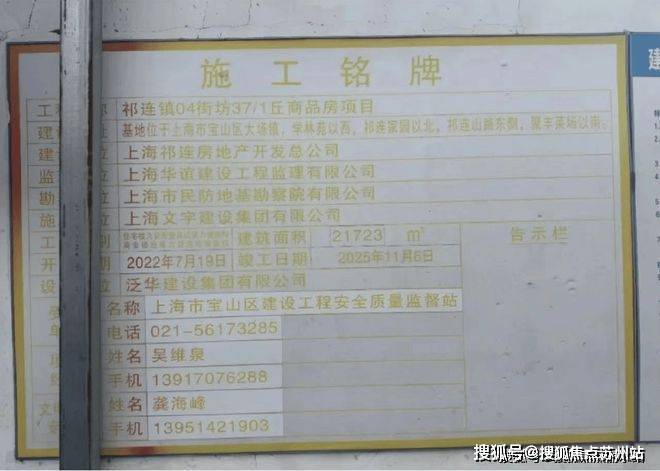 施工铭牌
工 称 祁连镇04街坊37/1丘商品房项目
建 址 基地位于上海市宝山区大场镇，学林苑以西，祁连家园以北，祁连山路东侧，聚丰菜场以南。
建 位 上海祁连房地产开发总公司
监 位 上海华谊建设工程监理有限公司
勘 位 上海市民防地基勘察院有限公司
施 位 上海文宇建设集团有限公司
工 别 建筑面积 21723 m²
告示栏
开 期 2022年7月19日 竣工日期 2025年11月6日
设 位 泛华建设集团有限公司
名称 上海市宝山区建设工程安全质量监督站
单 电话 021-56173285
项 姓名 吴维泉
经 手机 13917076288
文 姓名 龚海峰
手机 13951421903
建
搜狐号@搜狐焦点苏州站